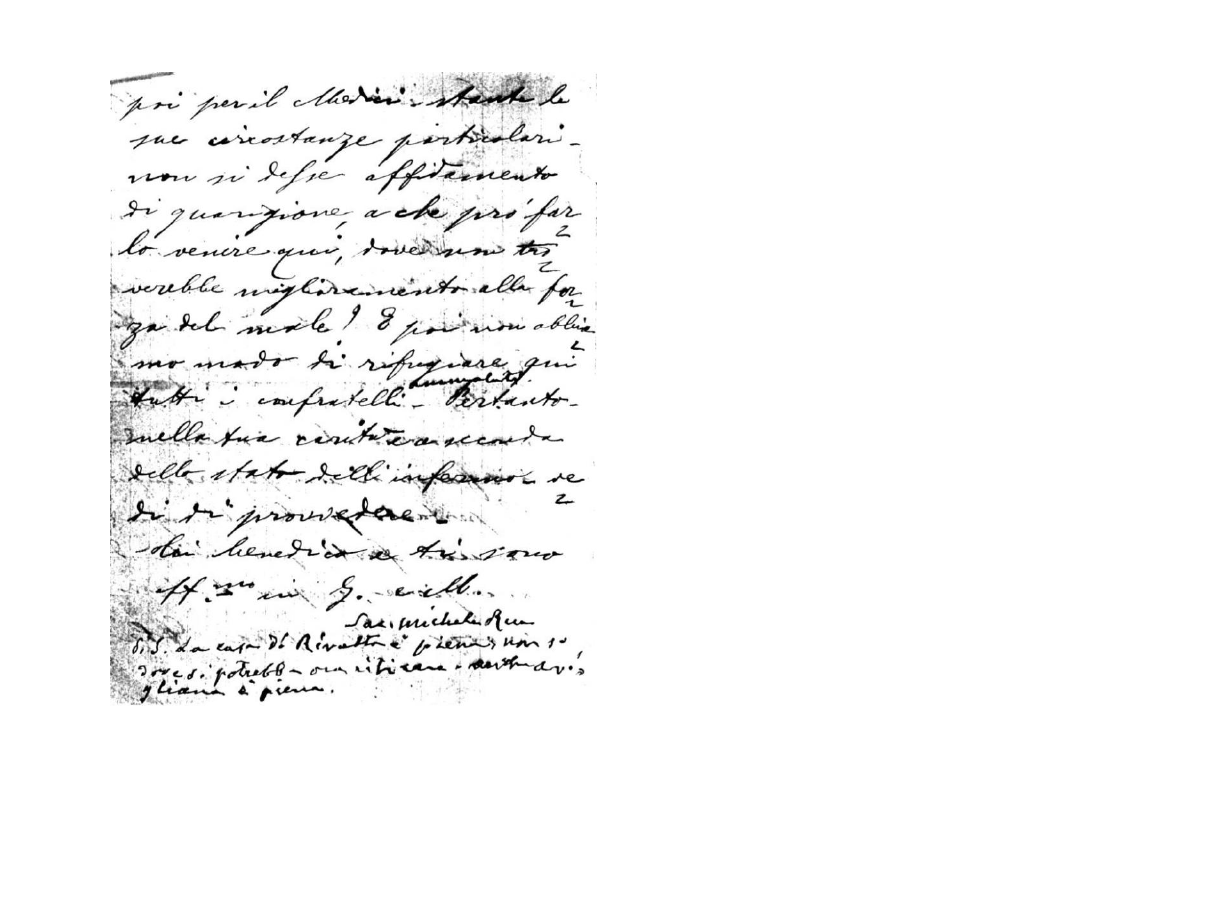 poi per il Medici - stante le
sue circostanze particolari -
non si desse affidamento
di guarigione, a che pró far
lo venire qui, dove non tro
verebbe miglioramento alla for
za del male? E poi non abbia
mo modo di rifugiare qui
tutti i confratelli ammalati. - Pertanto -
nella tua carità e a seconda
dello stato dell'infermo ve
di di provvedere -
benedica e ti sono
aff.mo in G. e M.
Sac. Michele Rua
P.S. La casa di Rivalta è piena, non so
dove si potrebbe ora ritirare - anche Avi
gliana è piena.